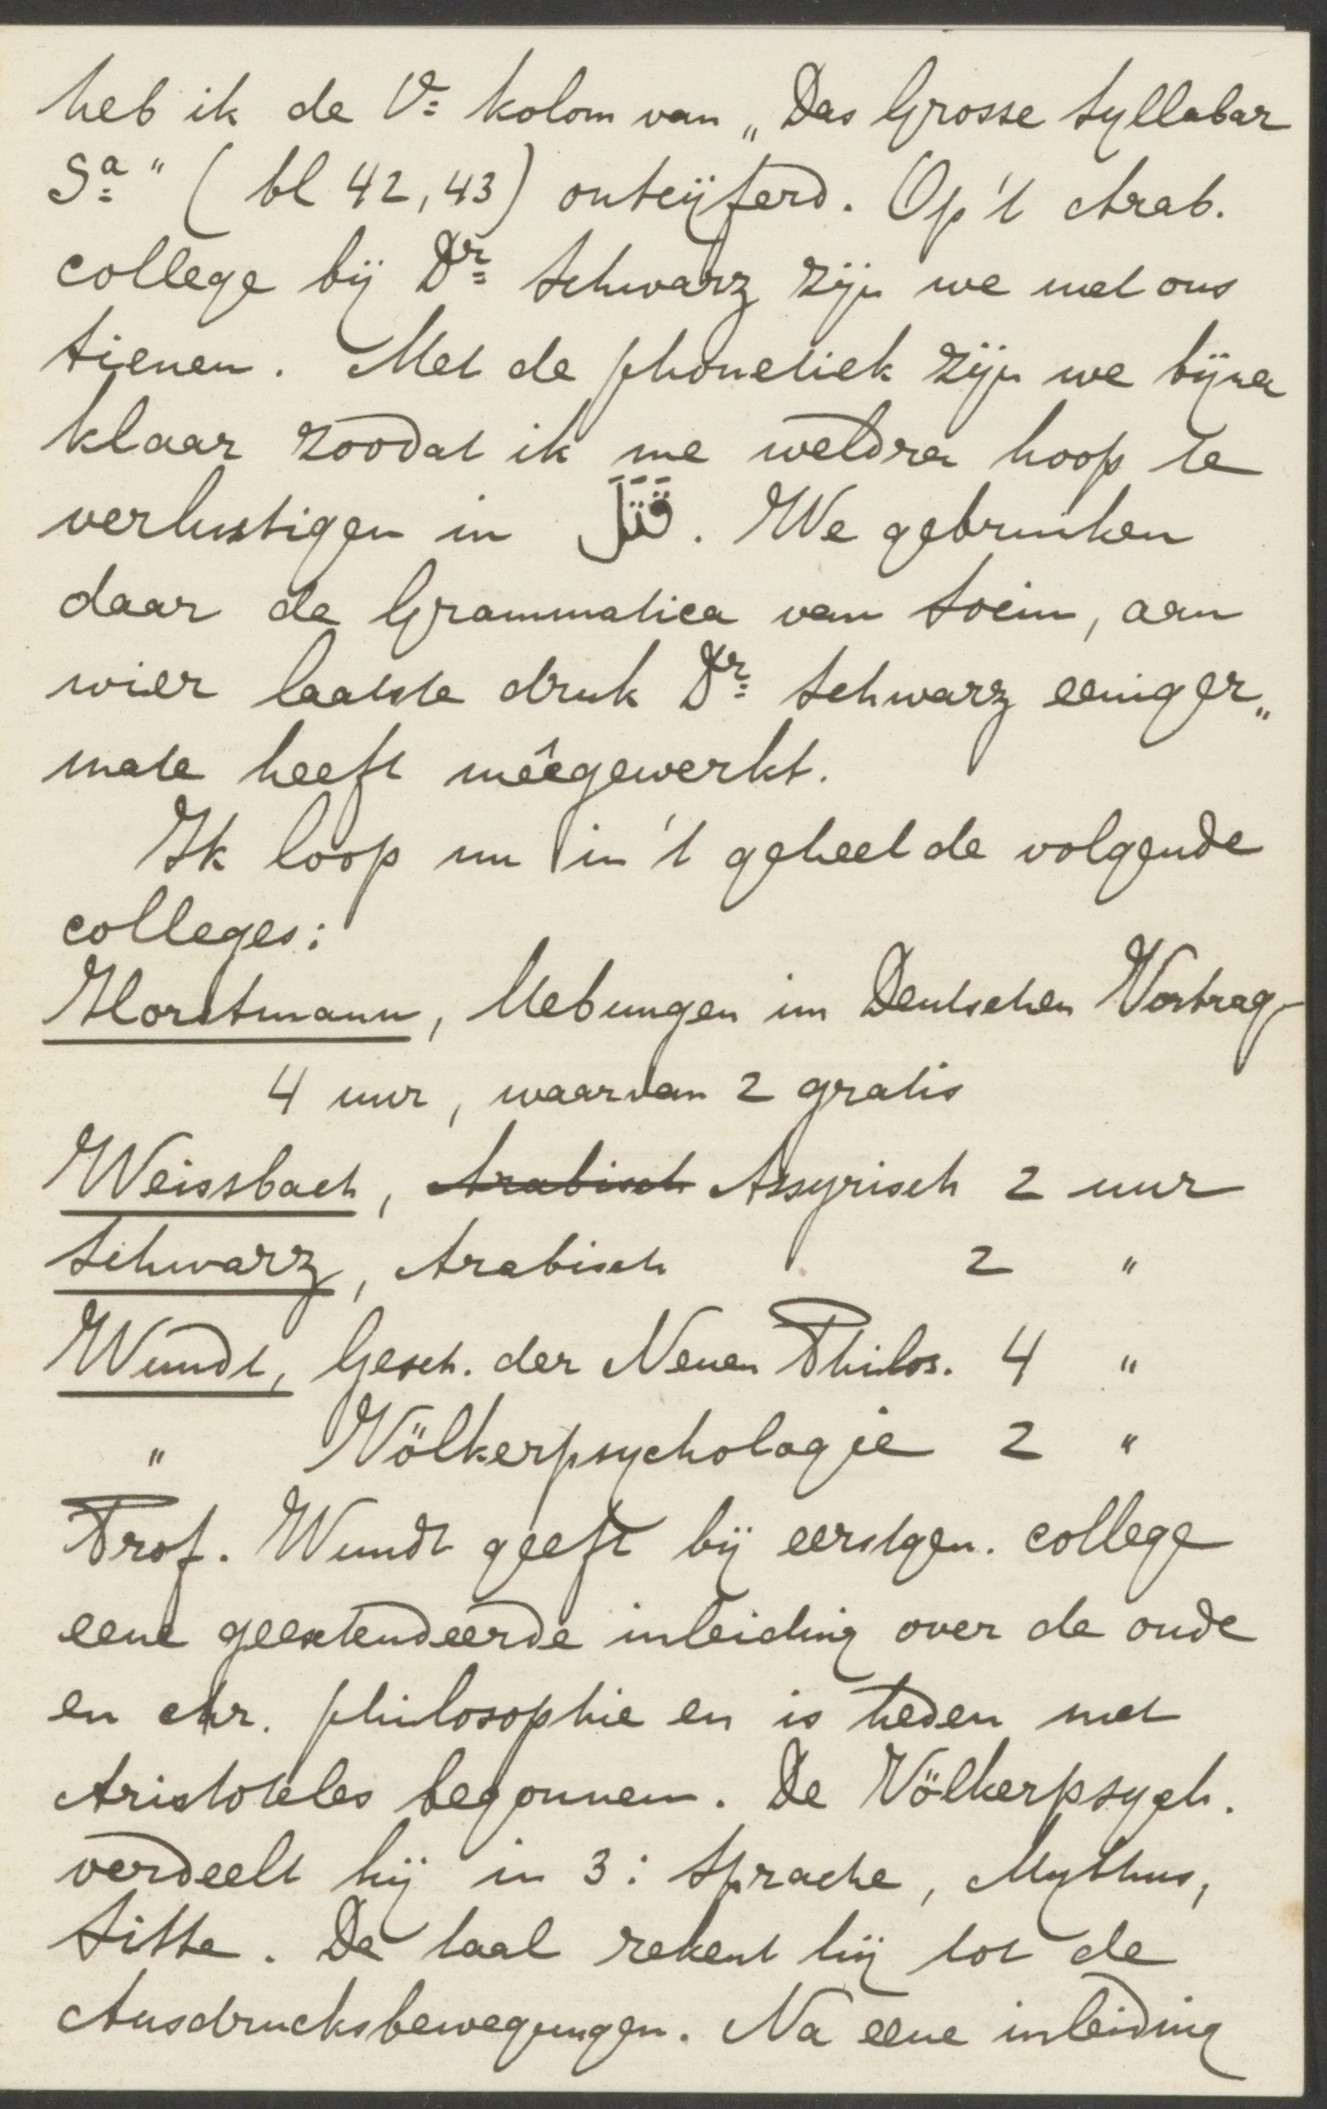 heb ik de Ve kolom van „Das Grosse Syllabar
Sa" (bl 42, 43) ontcijferd. Op 't Arab.
college bij Dr Schwarz zijn we met ons
tienen. Met de phonetiek zijn we bijna
klaar zoodat ik me weldra hoop te
verlustigen in قَتَلَ. We gebruiken
daar de Grammatica van Socin, aan
wier laatste druk Dr Schwarz eeniger„
mate heeft meêgewerkt.
Ik loop nu in 't geheel de volgende
colleges:
Horstmann, Uebungen im Deutschen Vortrag
4 uur, waarvan 2 gratis
Weissbach, Arabisch Assyrisch 2 uur
Schwarz, Arabisch 2 "
Wundt, Gesch. der Neuen Philos. 4 "
" Völkerpsychologie 2 "
Prof. Wundt geeft bij eerstgen. college
eene geextendeerde inleiding over de oude
en chr. philosophie en is heden met
Aristoteles begonnen. De Völkerpsych.
verdeelt hij in 3: Sprache, Mythus,
Sitte. De taal rekent hij tot de
Ausdrucksbewegungen. Na eene inleiding